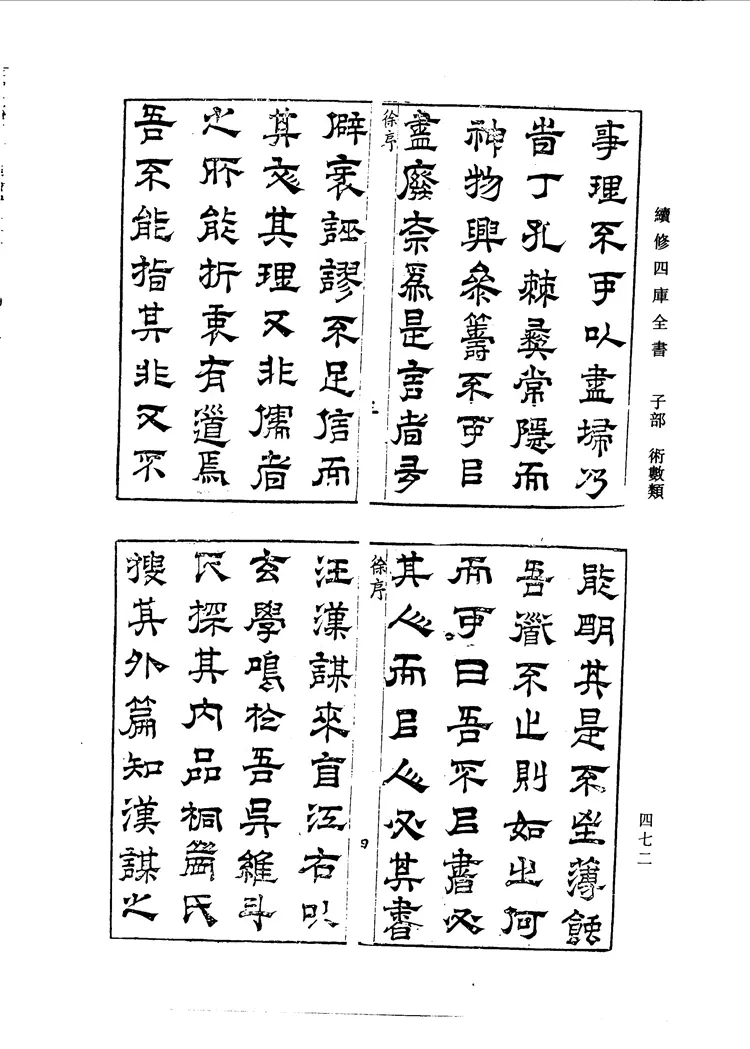 續修四庫全書 子部 術數類
事理不可以盡掃乃
昔丁孔棘彝常隱而
神物興叅籌不可㠯
盡廢奈爲是言者多
徐序
僻衺誣謬不足信而
其文其理又非儒者
之所能折衷有道焉
吾不能指其非又不
能明其是不坐薄蝕
吾衜不止則如之何
而可曰吾不㠯書必
其人而㠯人必其書
徐序
汪漢謀來自江右以
玄學鳴於吾吳維斗
氏探其內品桐氏
搜其外篇知漢謀之
四七二